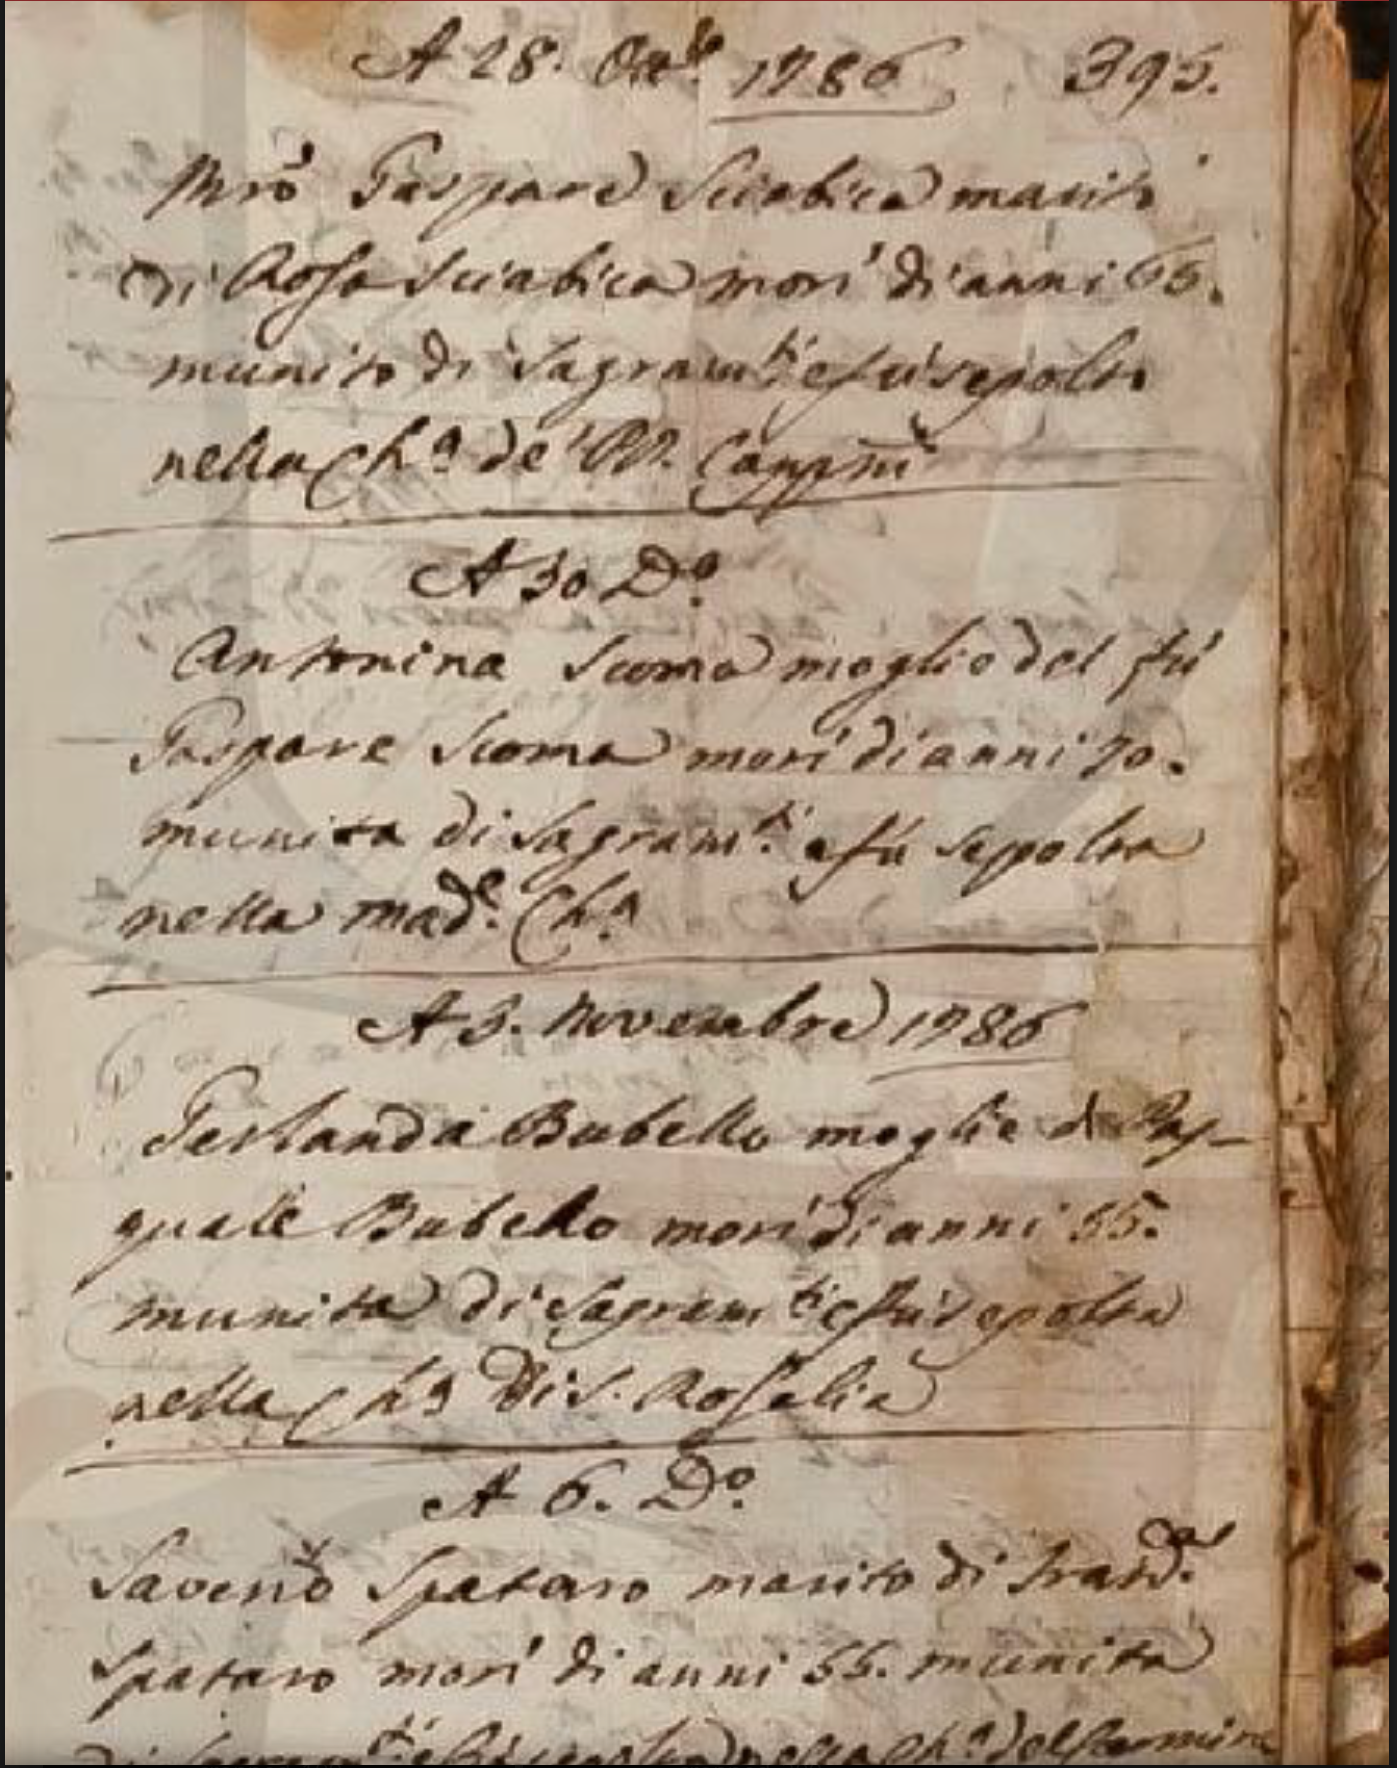 A 28. Ott.e 1786 395.
Mrõ Gaspare Sciabica marito
di Rosa Sciabica morì di anni 65.
munito di Sagram.ti e fù sepolto
nella Ch.a de' PP. Cappni
A 30 D.o
Antonina Scoma moglie del fù
Gaspare Scoma morì di anni 70.
munita di Sagram.ti e fù sepolta
nella mad.e Ch.a
A 3. Novembre 1786
Gerlanda Bubello moglie di Pas-
quale Bubello morì di anni 55.
munita di Sagram.ti e fù sepolta
nella Ch.a di S. Rosalia
A 6. D.o
Saverio Spataro marito di
Spataro morì di anni 55. munita
di Sagram.ti e fù sepolta nella Ch.a del Carmine